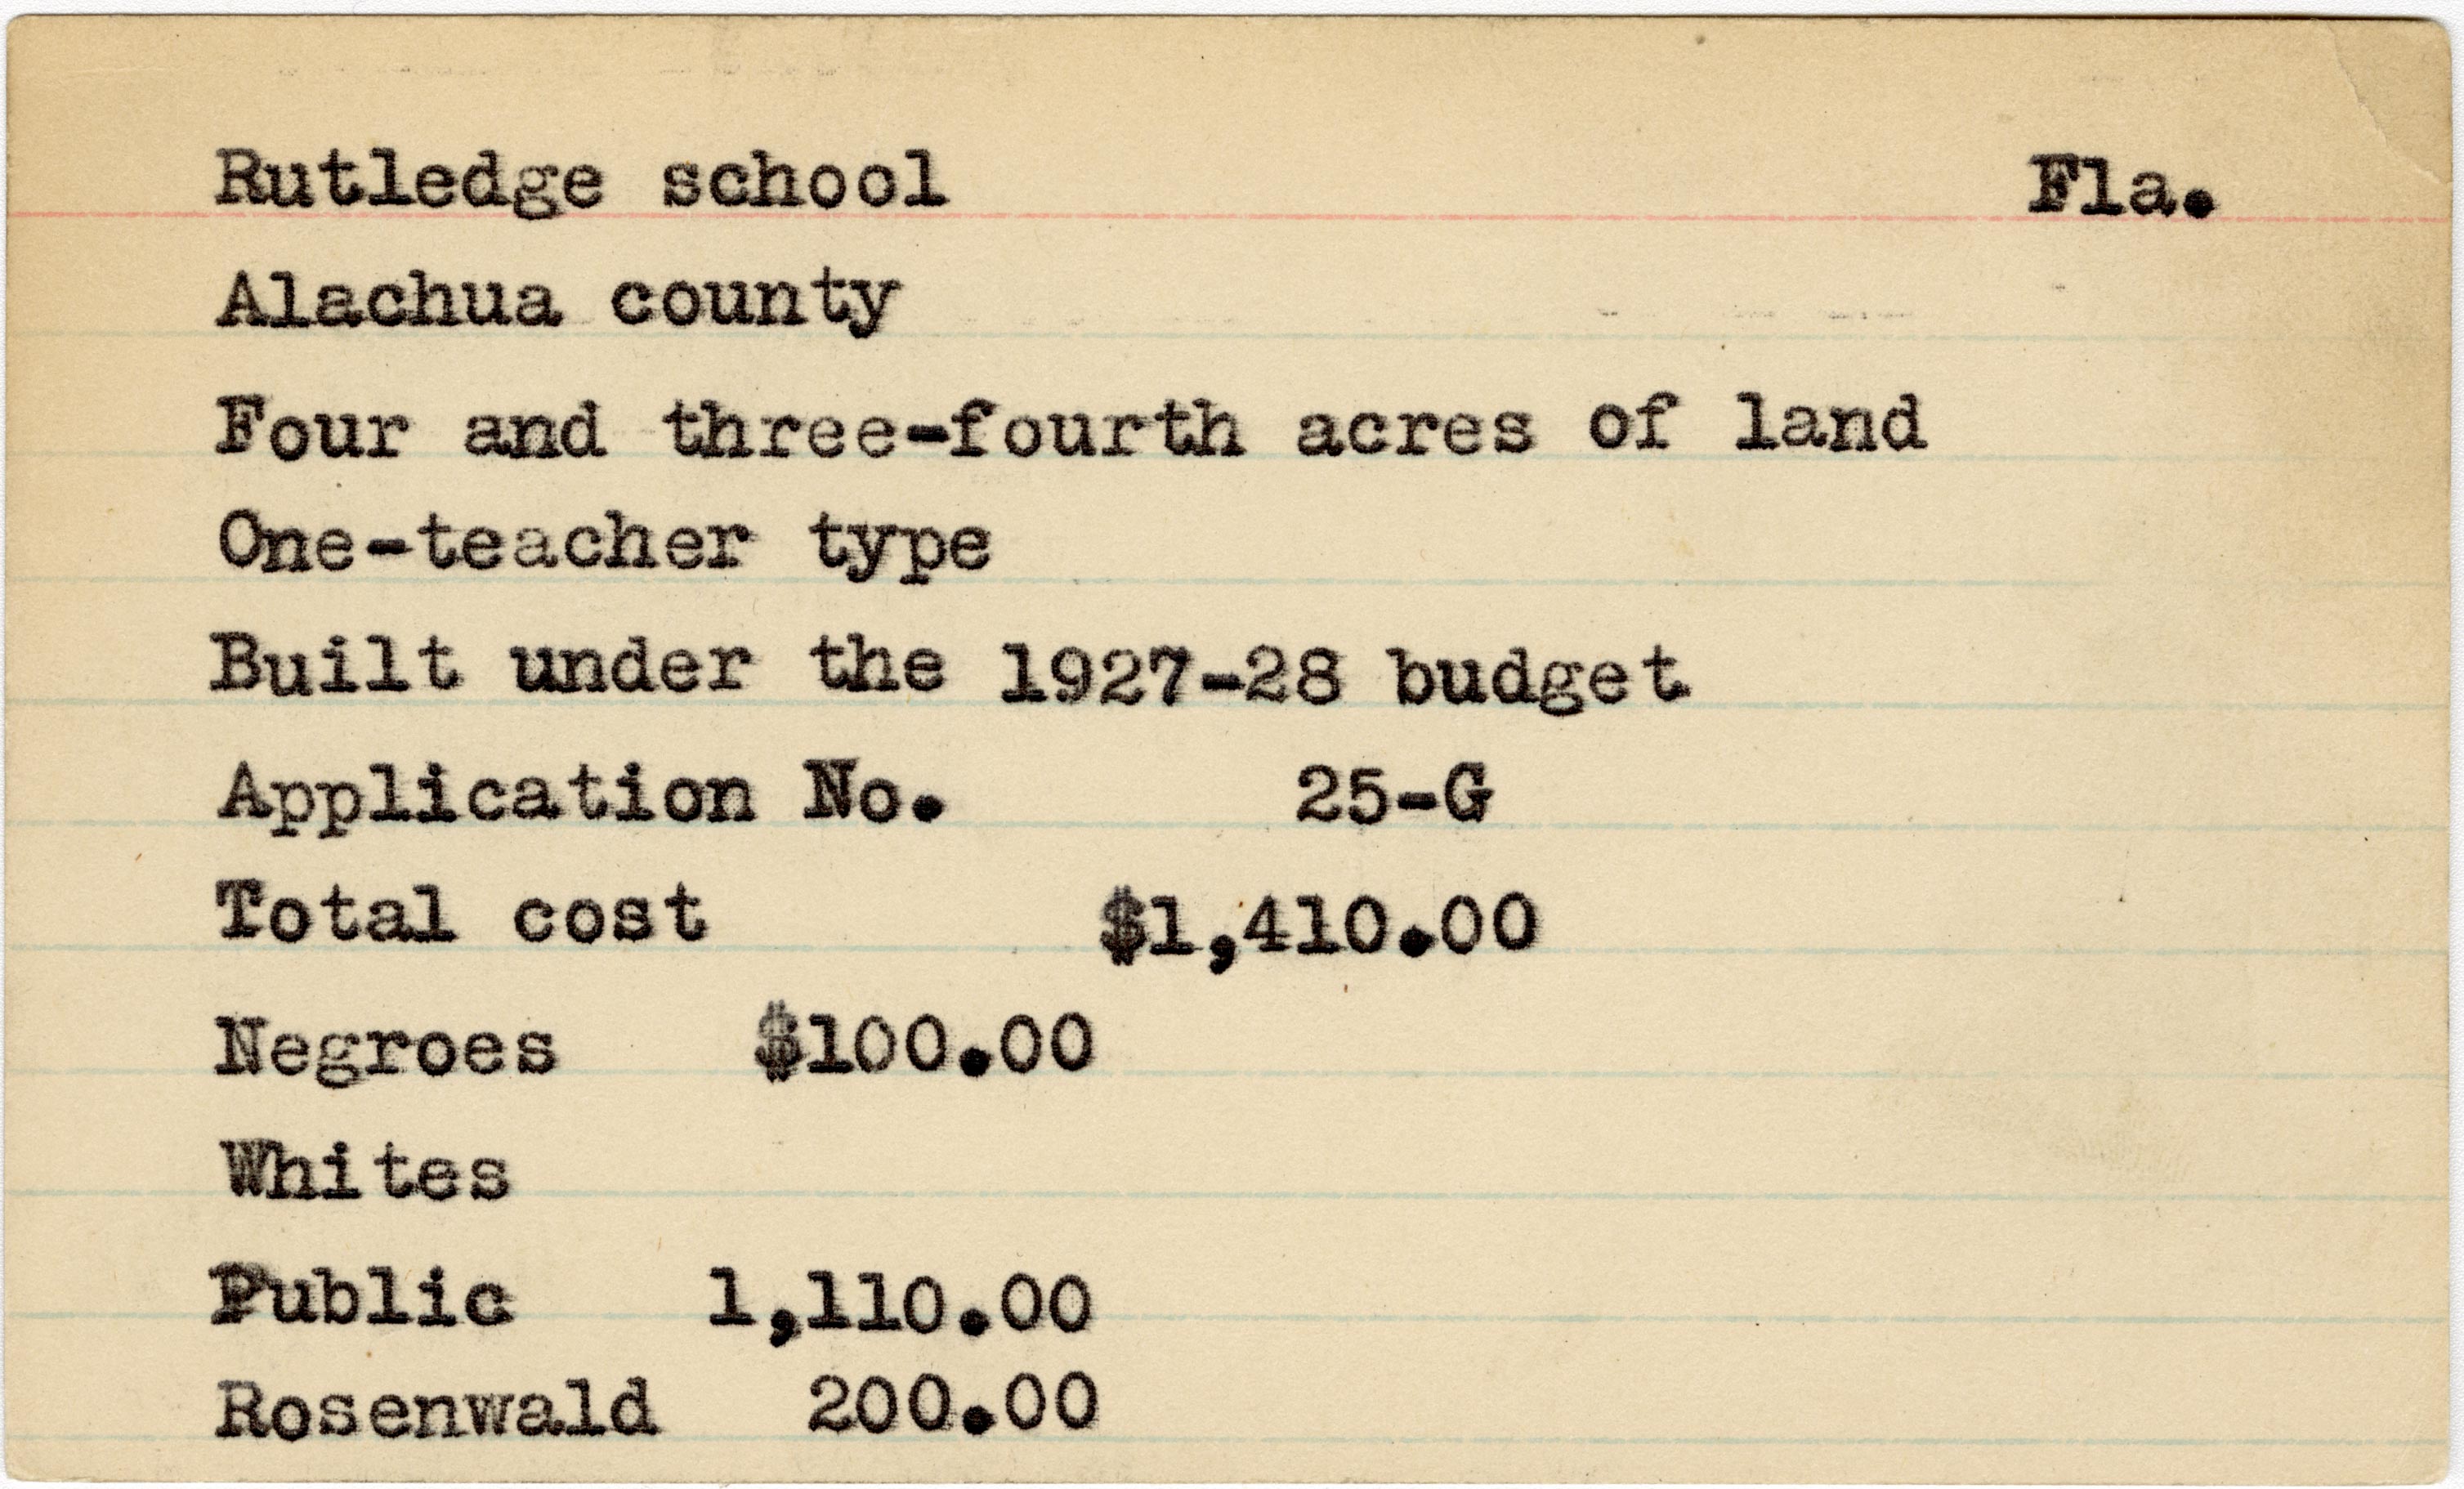 Rutledge school Fla.
Alachua county
Four and three-fourth acres of land
One-teacher type
Built under the 1927-28 budget
Application No. 25-G
Total cost $1,410.00
Negroes $100.00
Whites
Public 1,110.00
Rosenwald 200.00